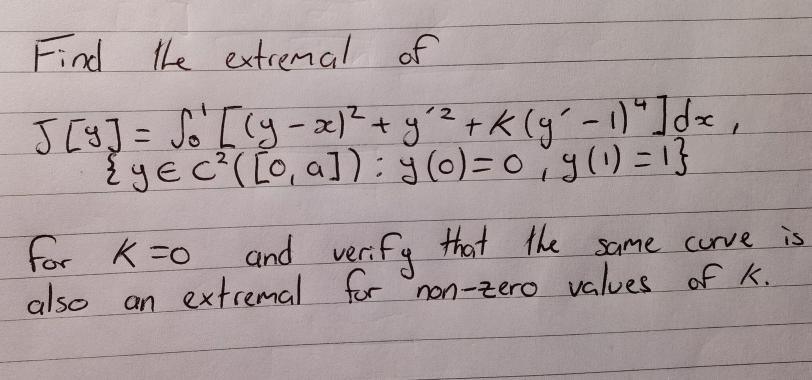 Find the extremal of
J[y] = ∫₀¹ [(y - x)² + y′² + K(y′ - 1)⁴]dx,
{y ∈ C²([0, a]) : y(0) = 0, y(1) = 1}
for K = 0 and verify that the same curve is
also an extremal for non-zero values of K.